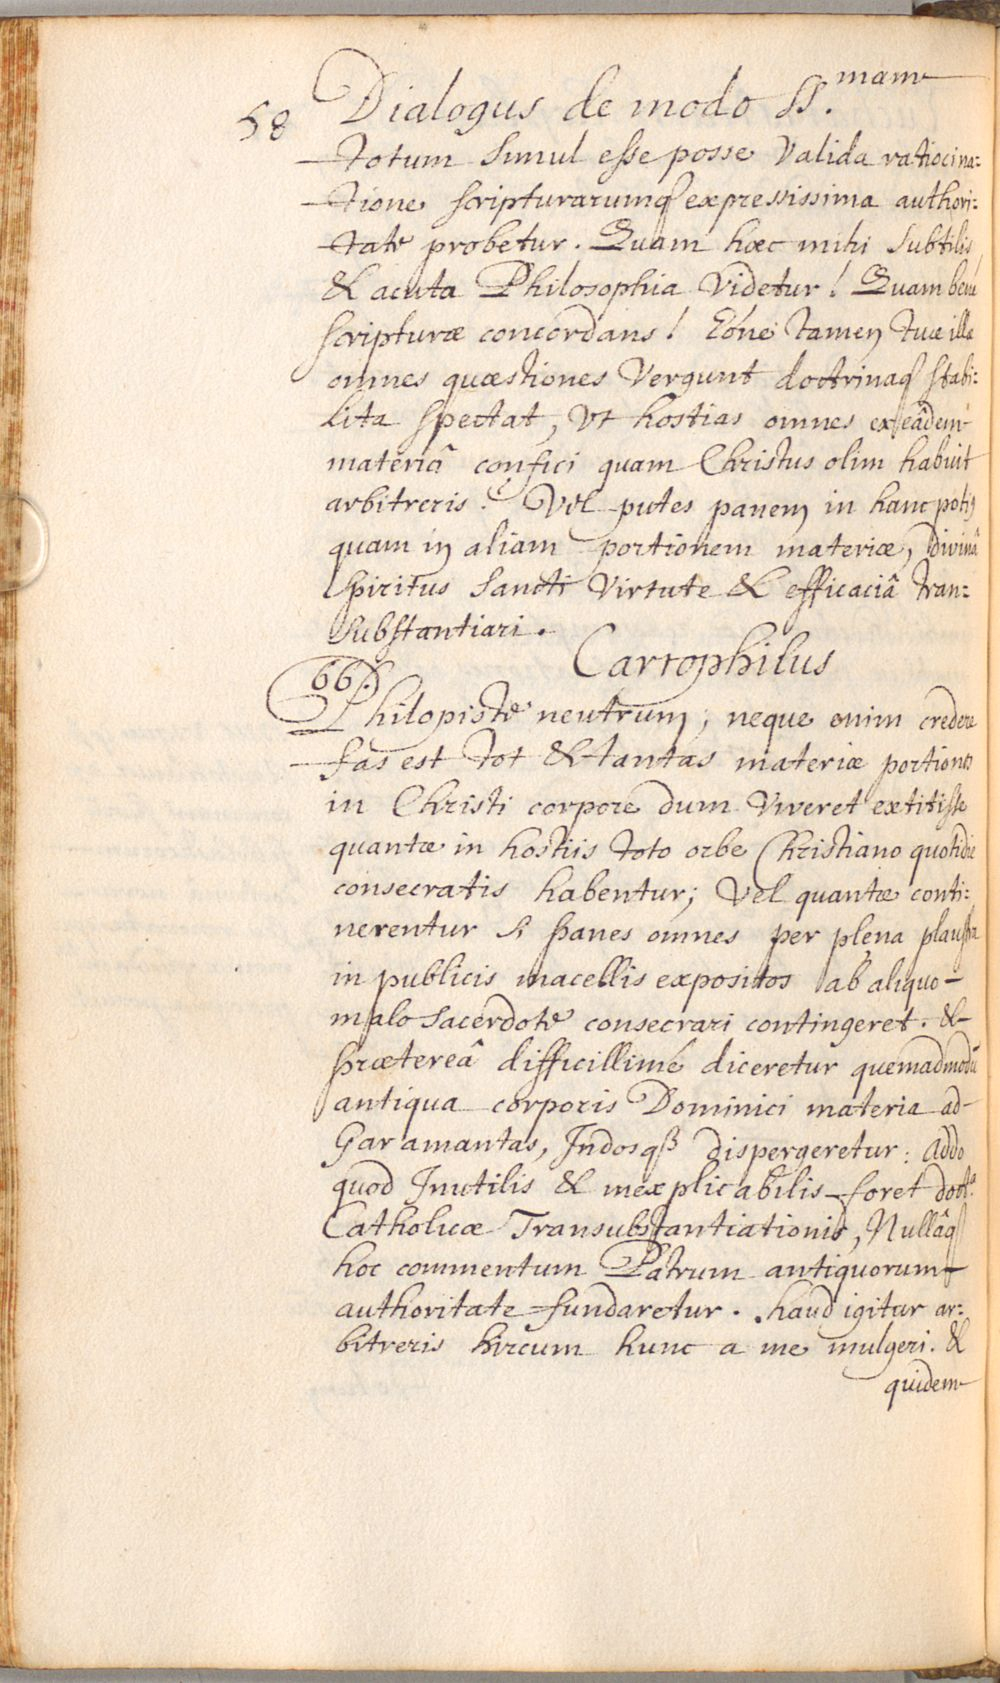 58 Dialogus de modo SS.mam
totum simul esse posse valida ratiocina=
tione scripturarumq expressissima authori:
tate probetur. Quam hæc mihi subtilis
& acuta Philosophia videtur! Quam bene
scripturæ concordans! Eóne tamen tuæ illæ
omnes quæstiones vergunt doctrinaq stabi:
lita spectat, ut hostias omnes ex eâdem
materiâ confici quam Christus olim habuit
arbitreris. Vel putes panem in hanc poti9
quam in aliam portionem materiæ, divinâ
spiritus sancti virtute & efficaciâ tran=
substantiari.
Cartophilus
66. Philopiste neutrum; neque enim credere
fas est tot & tantas materiæ portiones
in Christi corpore dum viveret extitisse
quantæ in hostiis toto orbe Christiano quotidie
consecratis habentur; vel quantæ conti:
nerentur si panes omnes per plena plaustra
in publicis macellis expositos ab aliquo
malo sacerdote consecrari contingeret. &
prætereâ difficillimé diceretur quemadmodū
antiqua corporis Dominici materia ad
Garamantas, Indosq3 dispergeretur: addo
quod Inutilis & inexplicabilis foret doct.a
Catholicæ Transubstantiationis, Nullâq
hoc commentum Patrum antiquorum
authoritate fundaretur. haud igitur ar:
bitreris hircum hunc a me mulgeri. &
quidem